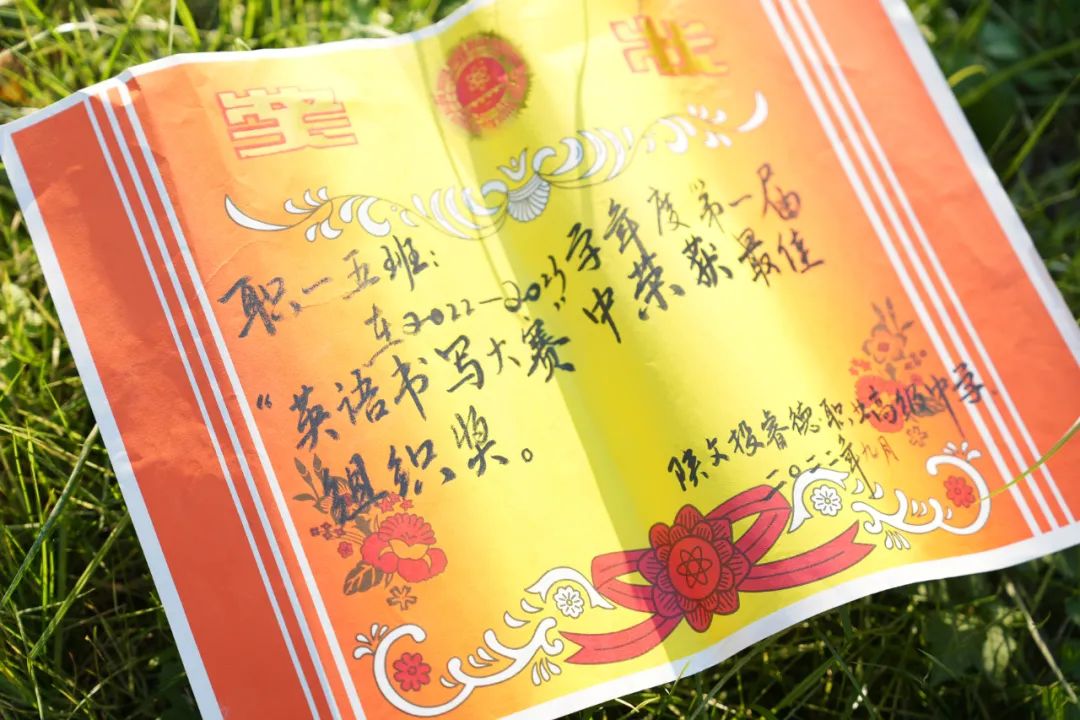 奖 状
职一五班：
在2022-2023学年度"第一届
"英语书写大赛"中荣获最佳
组织奖。
陕文投睿德职业高级中学
二〇二二年九月